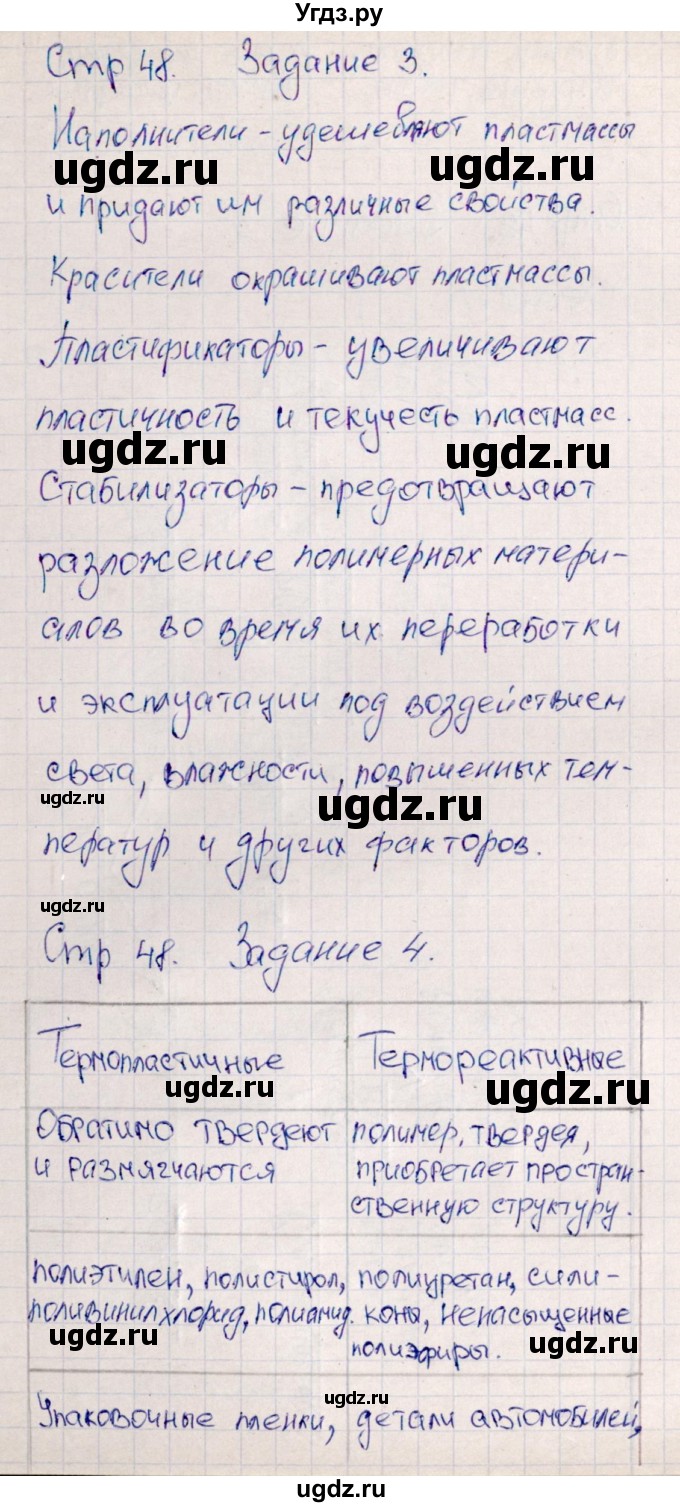 Угдз.ру
Стр 48. Задание 3.
Наполнители - удешевляют пластмассы
ugdz.ru ugdz.ru
и придают им различные свойства.
Красители окрашивают пластмассы.
Пластификаторы - увеличивают
пластичность и текучесть пластмасс.
ugdz.ru ugdz.ru
Стабилизаторы - предотвращают
разложение полимерных матери-
алов во время их переработки
и эксплуатации под воздействием
света, влажности, повышенных тем-
ugdz.ru ugdz.ru
ператур и других факторов.
ugdz.ru
Стр 48. Задание 4.
Термопластичные
Термореактивные
ugdz.ru ugdz.ru
Обратимо твердеют
и размягчаются
полимер, твердея,
приобретает простран-
ственную структуру.
полиэтилен, полистирол,
поливинилхлорид, полиамид.
полиуретан, сили-
коны, ненасыщенные
полиэфиры.
ugdz.ru ugdz.ru
ugdz.ru
Упаковочные пленки,
детали автомобилей,
ugdz.ru